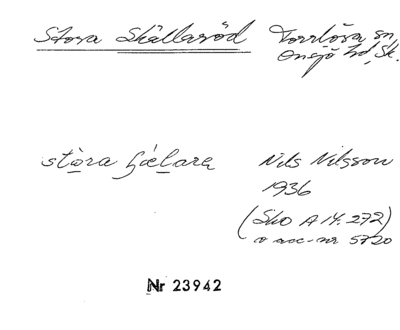 Stora Skällaröd Torrlösa sn,
Onsjö hd, Sk.
stòra Nils Nilsson
1936
(Sko A 14. 272)
o acc-nr 5720
Nr 23942